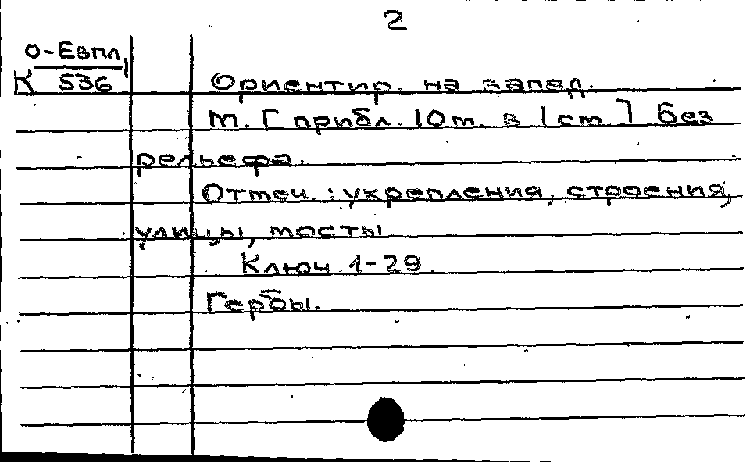 2
О-Евпл,
К 536
Ориентир. на запад.
М. [прибл. 10 м. в 1 см.] Без
рельефа.
Отмеч.: укрепления, строения,
улицы, мосты
Ключ 1-29.
Гербы.